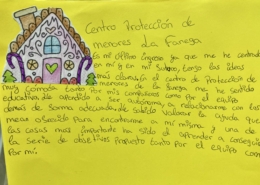 Centro Protección de
menores La Fanega
Es mi último ingreso ya que me he centrado
en mi y en mi futuro, tengo las ideas
mas claras. En el centro de Protección de
menores de la Fanega me he sentido
muy cómoda tanto por mis compañeros como por el equipo
educativo, he aprendido a ser autónoma, a relacionarme con los
demás de forma adecuada, he sabido valorar la ayuda que
me has ofrecido para encontrarme a mi misma y una de
las cosas mas importante ha sido el aprender a conseguir
la serie de objetivos propuesto tanto por el equipo como
por mi.